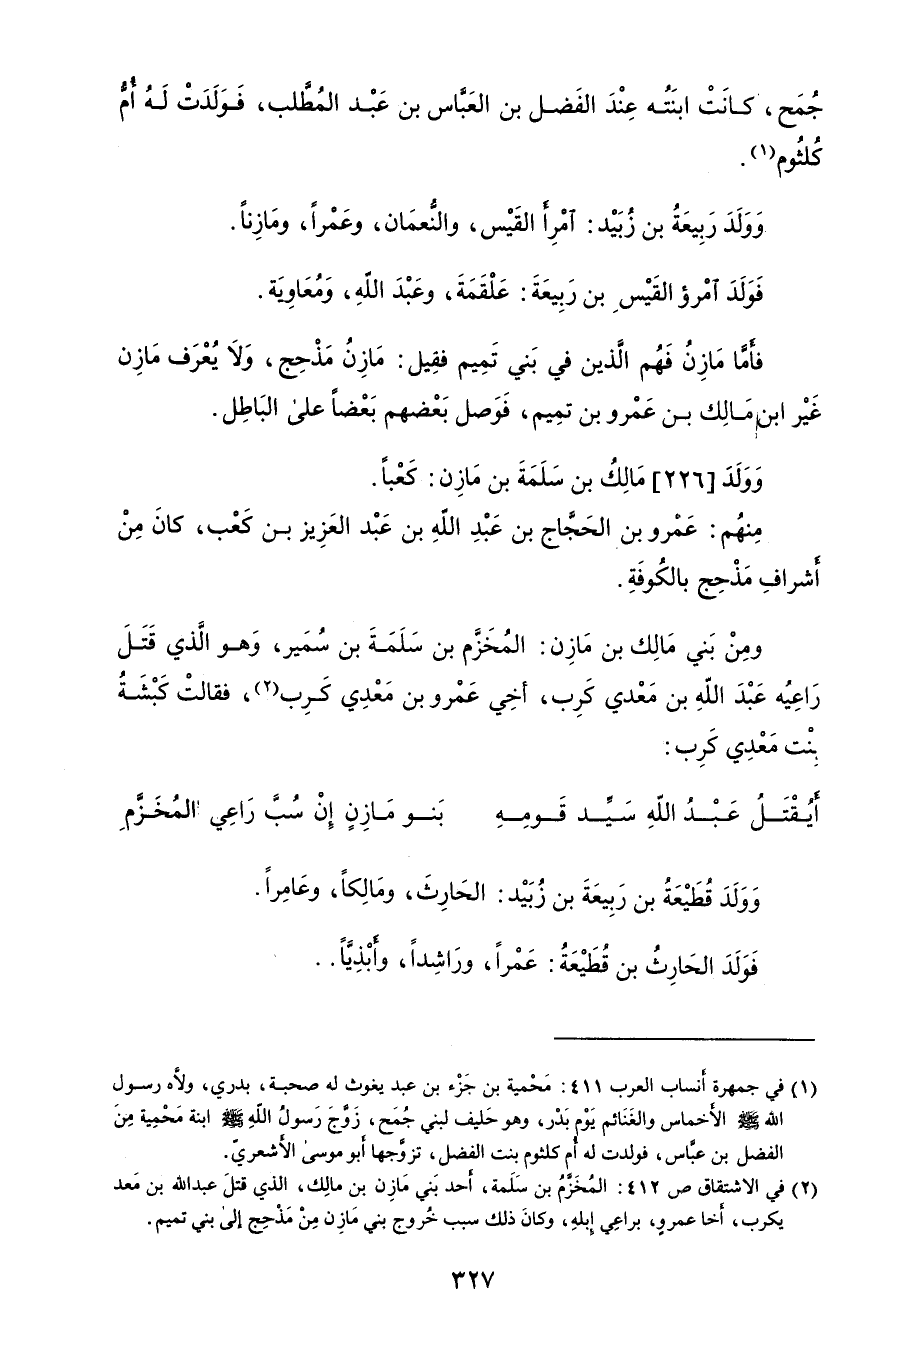 جُمَح، كـانَتْ ابنَتُـه عِنْدَ الفَضـل بن العَبَّاس بن عَبْـد المُطَّلب، فَـوَلَدَتْ لَـهُ أُمُّ
كُلثُوم(١).
وَوَلَدَ رَبِيعَةُ بن زُبَيْد: آمْرأَ القَيْس، والنُّعمَان، وعَمْراً، ومَازِناً.
فَوَلَدَ آمْرؤ القَيْسِ بن رَبِيعَةَ: عَلْقَمَةَ، وعَبْدَ اللّهِ، وَمُعَاوِيَة.
فأَمَّا مَازِنُ فَهُم الَّذين في بَني تَمِيم فقِيل: مَازِنُ مَذْحِج، وَلاَ يُعْرَف مَازِن
غَيْر ابن مَـالِك بـن عَمْرو بن تمِيم، فَوَصل بَعْضهم بَعْضاً علىٰ البَاطِل.
وَوَلَدَ [٢٢٦] مَالِكُ بن سَلَمَةَ بن مَازِن: كَعْباً.
مِنهُم: عَمْرو بن الحَجَّاج بن عَبْدِ اللّهِ بن عَبْد العَزِيز بـن كَعْب، كانَ مِنْ
أَشرافِ مَذْحِج بالكُوفَةِ.
ومِنْ بَني مَالِك بن مَازِن: المُخَزَّم بن سَلَمَـةَ بن سُمَير، وَهـو الَّذي قَتَـلَ
رَاعِيُه عَبْدَ اللّهِ بن مَعْدي كَرِب، أخِي عَمْرو بن مَعْدِي كَـرِب(٢)، فقالتْ كَبْشَـةُ
بِنْت مَعْدِي كَرِب:
أَيُـقْتَـلُ عَـبْـدُ اللّهِ سَـيِّـد قَـومِـهِ بَنـو مَـازِنٍ إِنْ سُبَّ رَاعِي المُخَـزَّمِ
وَوَلَدَ قُطَيْعَةُ بن رَبِيعَةَ بن زُبَيْد: الحَارِثَ، ومَالِكاً، وعَامِراً.
فَوَلَدَ الحَارِثُ بن قُطَيْعَةُ: عَمْراً، ورَاشِداً، وأَبْذِيَّاً. .
(١) في جمهرة أنساب العرب ٤١١: مَحْمية بن جَزْء بن عبد يغوث له صحبة، بدري، ولأه رسـول
الله ﷺ الأخماس والغَنَائم يَوْم بَدْر، وهو حَليف لبني جُمَح، زَوَّجَ رَسولُ اللّهِ ﷺ ابنة مَحْمِية مِنَ
الفضل بن عبَّاس، فولدت له أُم كلثوم بنت الفضل، تزوَّجها أبو موسىٰ الأشعريّ.
(٢) في الاشتقاق ص ٤١٢: المُخَزَّمُ بن سَلَمة، أحد بَني مَازن بن مالِك، الذي قتلَ عبدالله بن مَعد
يكرب، أخا عمروٍ، براعِي إبلهِ، وكانَ ذلك سبب خُروج بني مَازن مِنْ مَذْحِج إلىٰ بني تميم.
٣٢٧